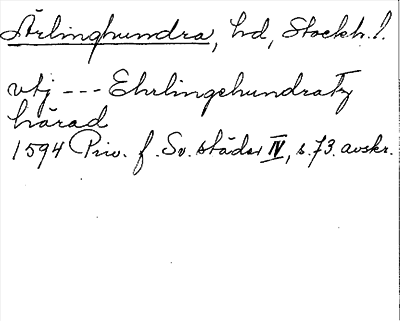 Ärlinghundra, hd, Stockh. l.
utj --- Ehrlingehundratz
härad
1594 Priv. f. Sv. städer IV, s. 73. avskr.